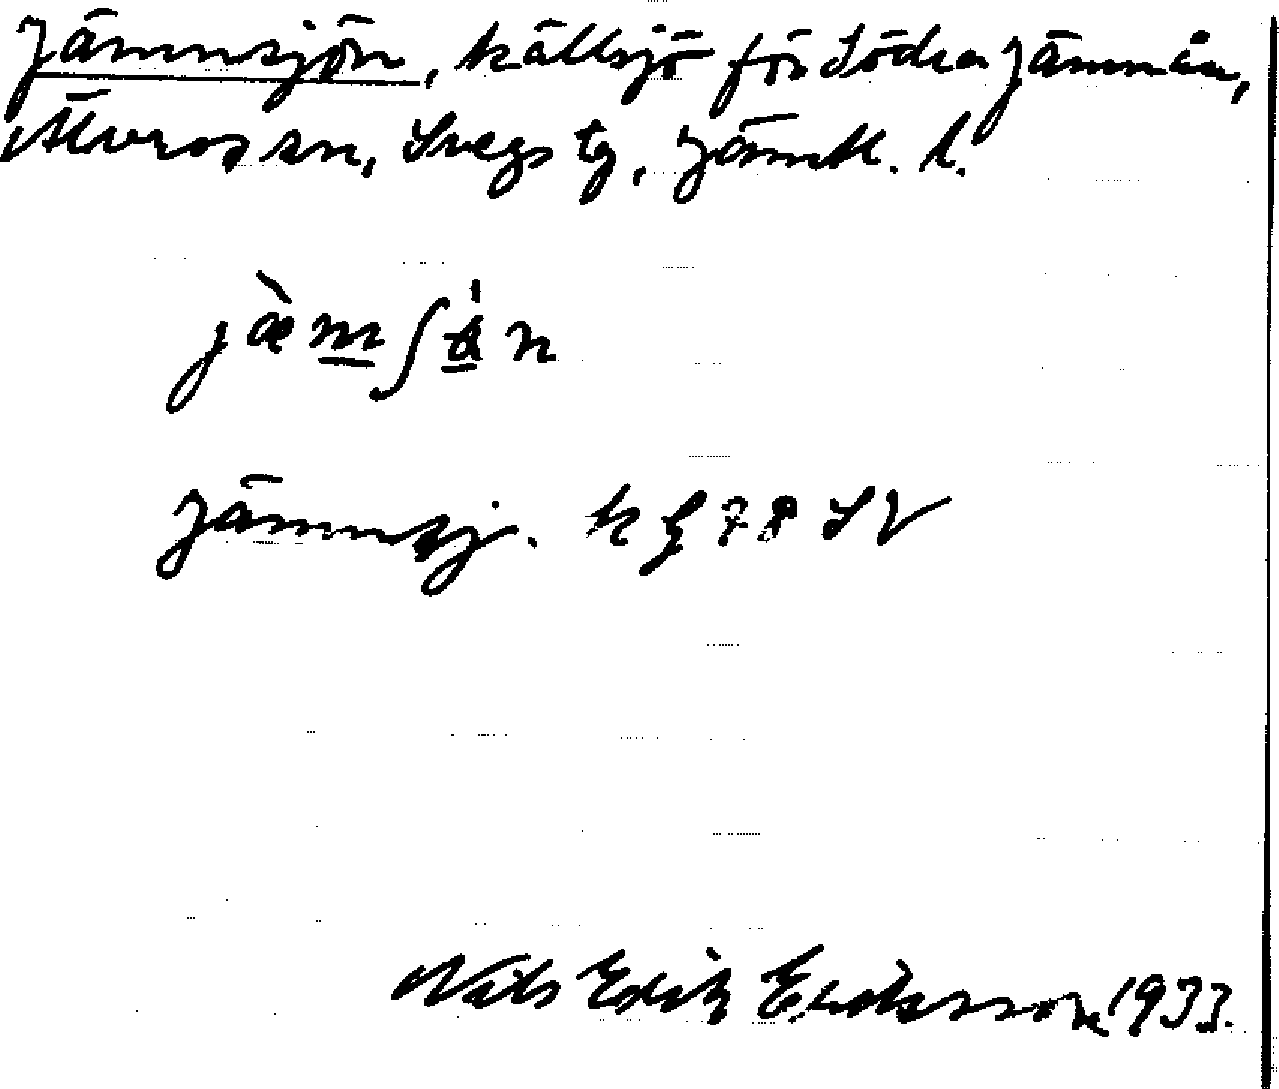 Jämnsjön, källsjö för Södra Jämnån,
Älvros sn, Svegs tg, Jämtl. l.
jæ̀m̲ʃ n
Jämnsj. k ξ 78 SV
Nils Erik Eriksson 1933.